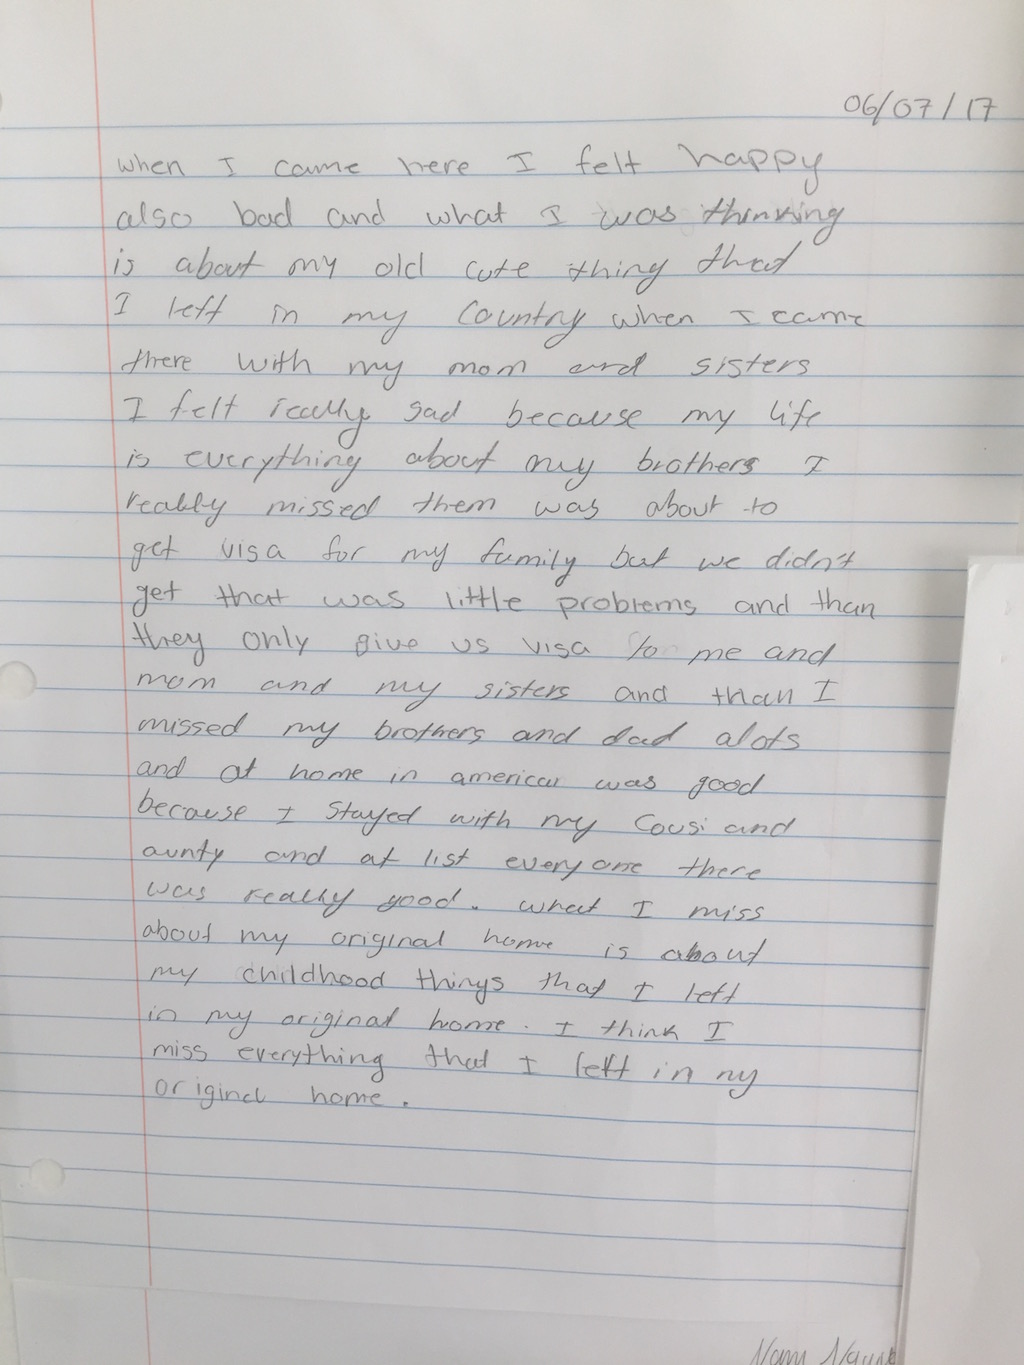 06/07/17
when I came here I felt happy
also bad and what I was thinking
is about my old cute thing that
I left in my Country when I came
there with my mom and sisters
I felt really sad because my life
is everything about my brothers I
really missed them was about to
get visa for my family but we didn't
get that was little problems and than
they only give us visa to me and
mom and my sisters and than I
missed my brothers and dad alots
and at home in american was good
because I stayed with my Cousi and
aunty and at list every one there
was really good. what I miss
about my original home is about
my childhood things that I left
in my original home. I think I
miss everything that I left in ny
original home.